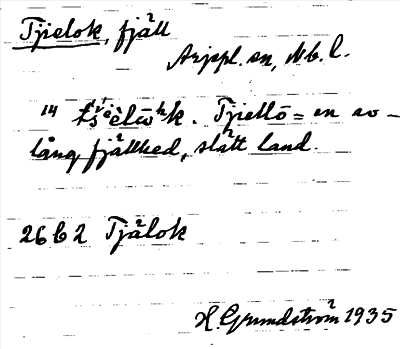 Tjielok, fjäll
Arjepl. sn, Nb. l.
14 Tjiellō = en av-
lång fjällhed, slätt land.
26 C 2 Tjålok
H Grundström 1935